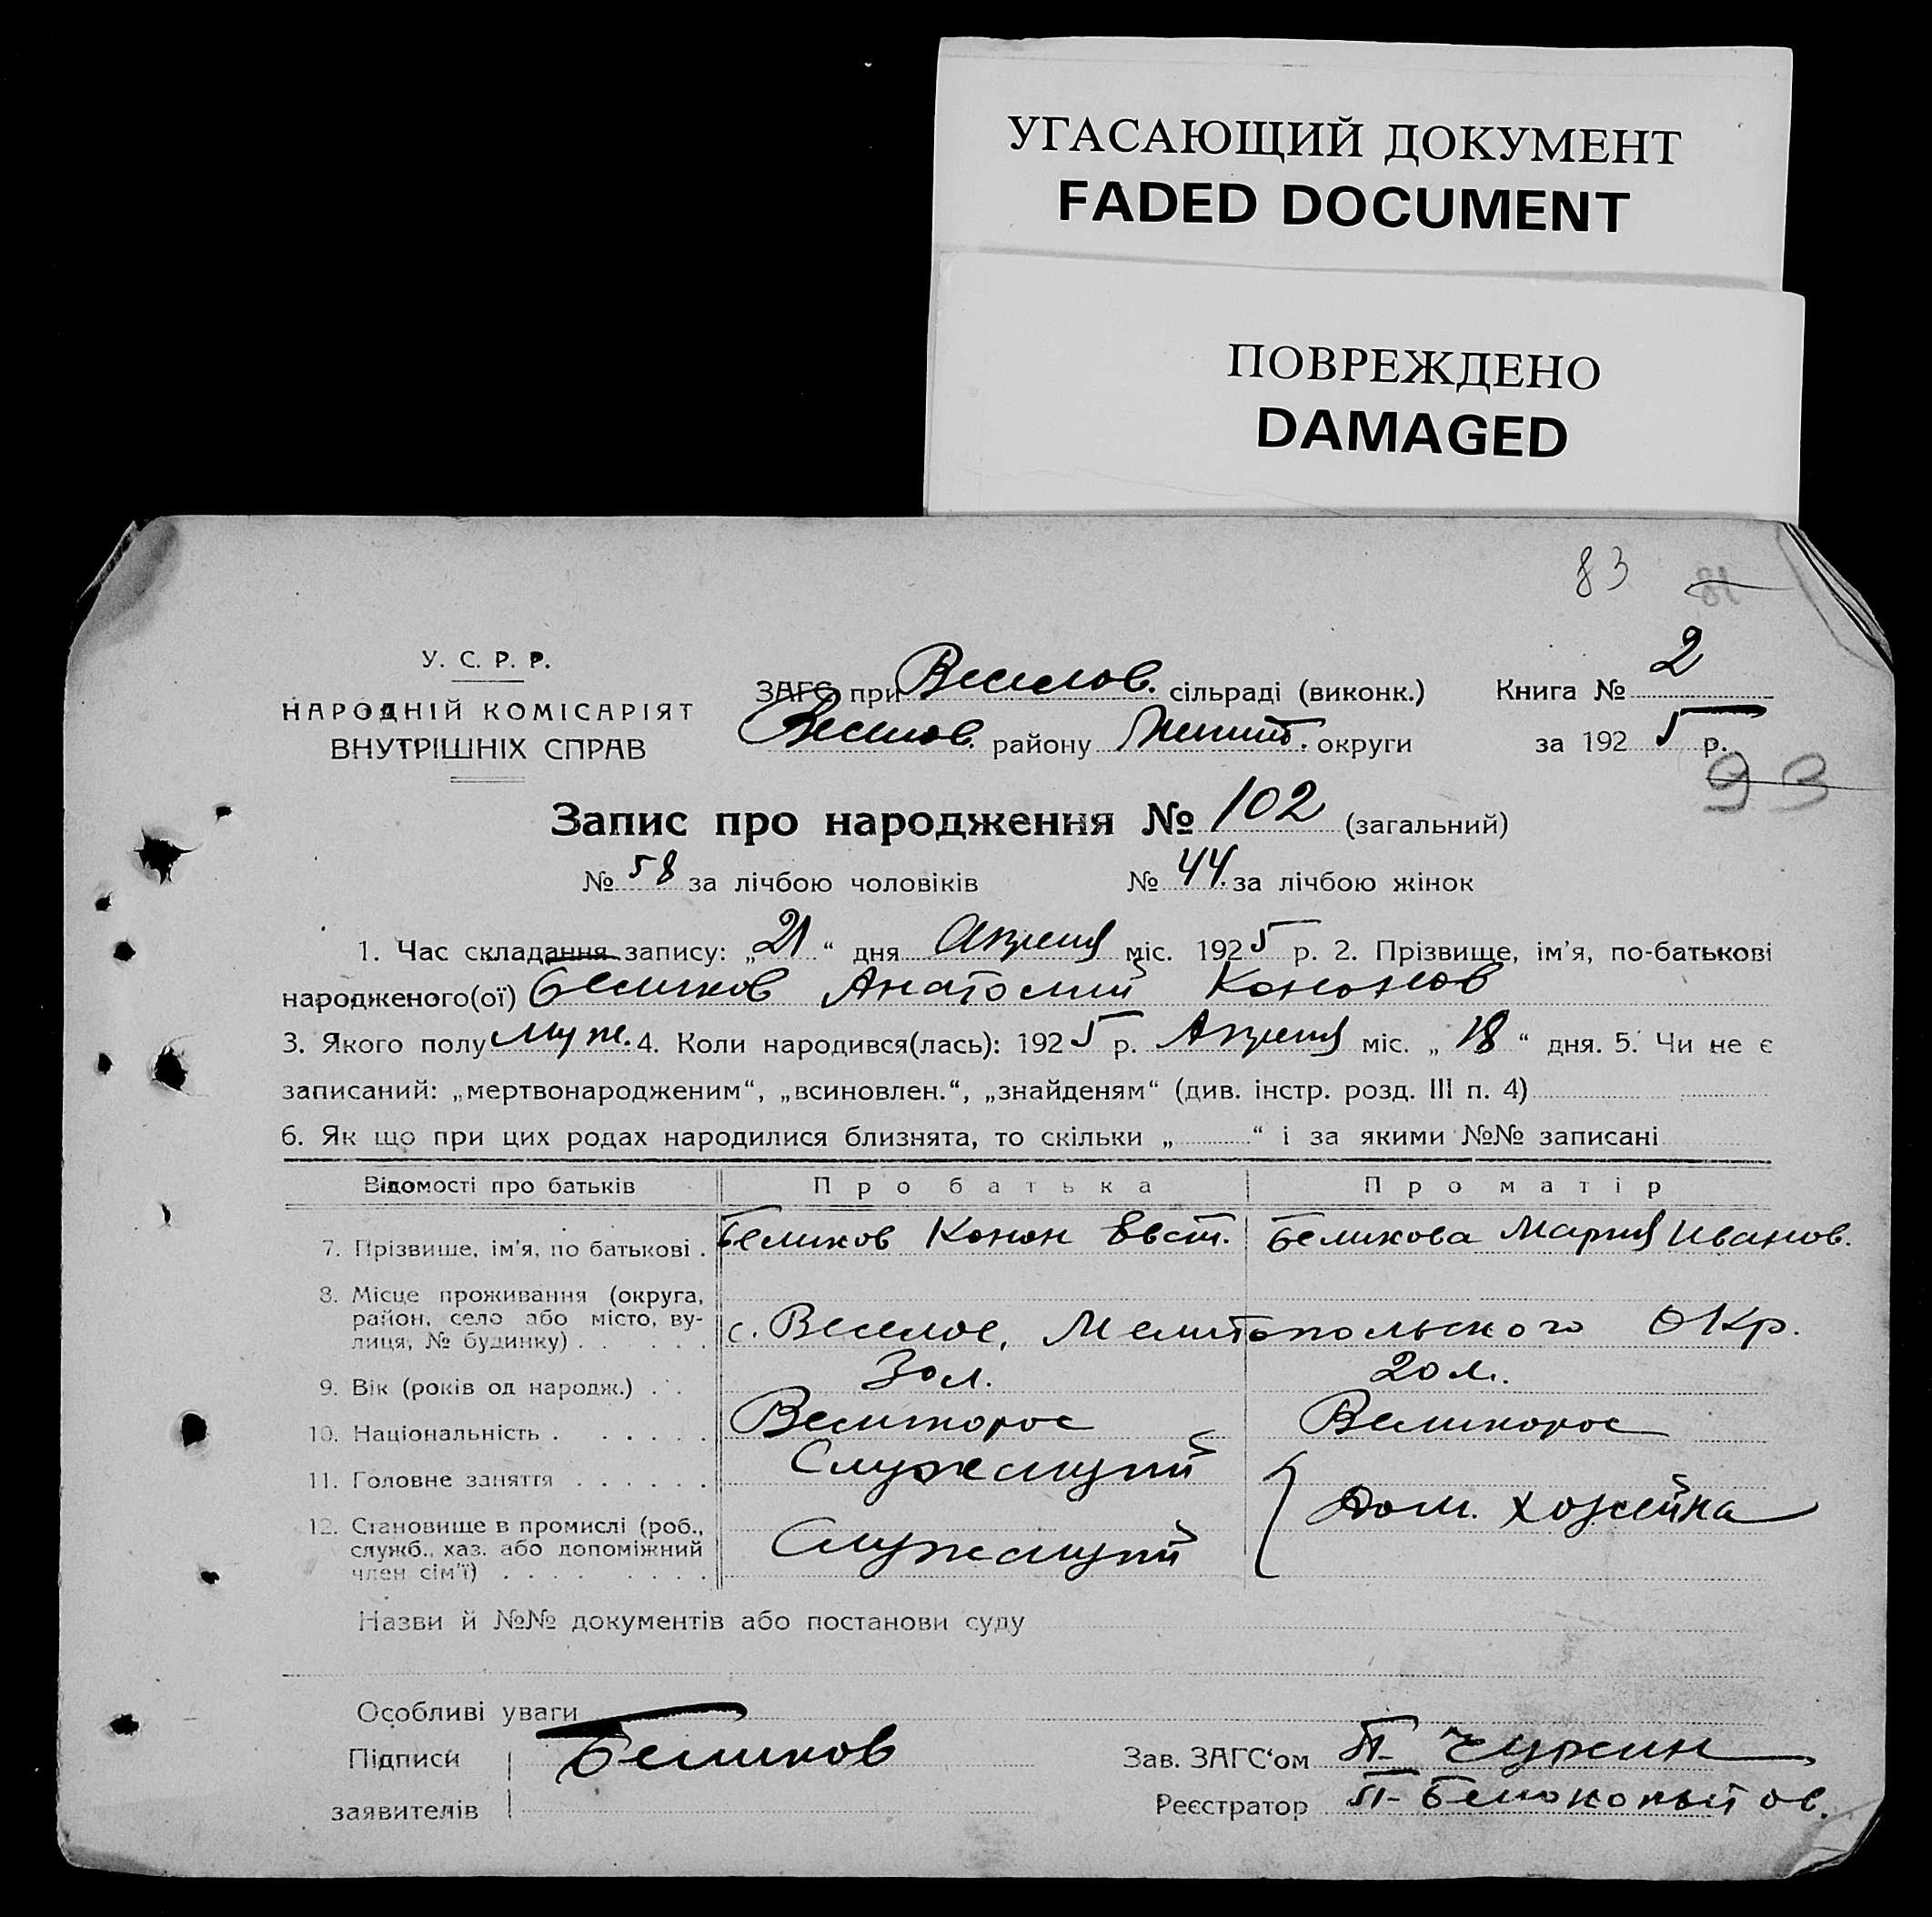 УГАСАЮЩИЙ ДОКУМЕНТ
FADED DOCUMENT
ПОВРЕЖДЕНО
DAMAGED
83 81
У. С. Р. Р.
НАРОДНІЙ КОМІСАРІЯТ
ВНУТРІШНІХ СПРАВ
ЗАГС при Веселов. сільраді (виконк.)
Веселов. району Мелит. округи
Книга № 2
за 1925 р.
93
Запис про народження № 102 (загальний)
№ 58 за лічбою чоловіків № 44. за лічбою жінок
1. Час складання запису: „21“ дня Апреля міс. 1925 р. 2. Прізвище, ім’я, по-батькові
народженого(ої) Беликов Анатолий Кононов
3. Якого полу муж. 4. Коли народився(лась): 1925 р. Апреля міс. „18“ дня. 5. Чи не є
записаний: „мертвонародженим“, „всиновлен.“, „знайденям“ (див. інстр. розд. III п. 4)
6. Як що при цих родах народилися близнята, то скільки „ “ і за якими №№ записані
Відомості про батьків Про батька Про матір
7. Прізвище, ім’я, по батькові . Беликов Конон Евст. Беликова Мария Иванов.
8. Місце проживання (округа,
район, село або місто, ву-
лиця, № будинку) . . . . . . с. Веселое, Мелитопольского Окр.
9. Вік (років од народж.) . . 30 л. 20 л.
10. Національність . . . . . . Великорос Великорос
11. Головне заняття . . . . . . Служащий
Дом. хозейка
12. Становище в промислі (роб.,
служб., хаз. або допоміжний
член сім’ї) . . . . . . . . Служащий
Назви й №№ документів або постанови суду
Особливі уваги
Підписи Беликов
заявителів
Зав. ЗАГС‘ом П- Чуркин
Реєстратор П- Белокопытов.